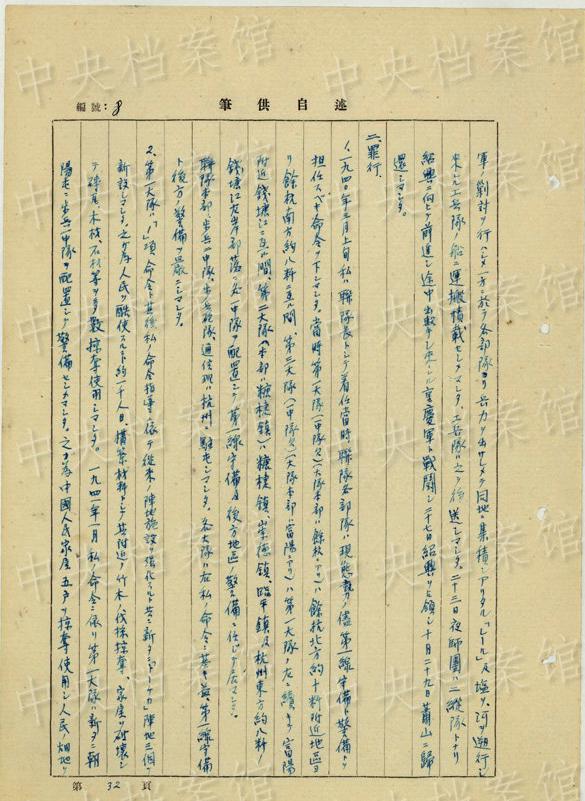 述自供筆
編號：8
軍ノ剿討ヲ行ハシメ一方ニ於テ各部隊ヨリ兵力ヲ出サシメテ同地ニ集積シアリタル「レール」及塩ヲ、河ヲ遡行シ
来レル工兵隊ノ船ニ運搬積載セシメマシタ。工兵隊ハ之ヲ後送シマシタ。二十三日夜師團ハ二縦隊トナリ
紹興ニ向ヒテ前進シ途中出撃シ来レル重慶軍ト戰鬪シ二十七日紹興ヲ占領シ十月二十九日蕭山ニ歸
還シマシタ。
二、罪行、
1、一九四〇年三月上旬私ハ聯隊長トシテ着任當時聯隊各部隊ハ現態勢ノ儘第一線守備ト警備トヲ
担任スベキ命令ヲ下シマシタ。當時第一大隊（一中隊欠）（大隊本部ハ餘杭ニアリ）ハ餘杭北方約十粁附近地區ヨ
リ餘杭南方約八粁ニ亘ル間、第三大隊（一中隊欠）（大隊本部ハ富陽ニアリ）ハ第一大隊ノ左ニ續キテ富陽
附近錢塘江ニ亘ル間、第二大隊（本部ハ糖棲鎮）ハ糖棲鎮、崇德鎮、臨平鎮及杭州東方約八粁ノ
錢塘江左岸部落ニ各一中隊ヲ配置シテ第一線守備及後方地區ノ警備ニ任ジテ居マシタ。
聯隊本部、步兵一中隊、步兵砲隊、通信班ハ杭州ニ駐屯シマシタ。各大隊ハ右私ノ命令ニ基キ益〻第一線守備
ト後方ノ警備ヲ嚴ニシマシタ。
2、第一大隊ハ「1」項ノ命令ト其後私ノ命令指導ニ依テ從来ノ陣地施設ヲ強化スルト共ニ新タニ「トーチカ」陣地三個
新設シマシタ。之ガ為人民ヲ酷使スルコト約一千人日、構築材料トシテ其附近ノ竹木ノ伐採掠奪、家屋ヲ破壊シ
テ磚瓦、木材、石材等ヲ多數掠奪使用シマシタ。一九四一年一月私ノ命令ニ依リ第一大隊ハ新タニ朝
陽屯ニ步兵一中隊ヲ配置シテ警備セシメマシタ。之ガ為中國人民家屋五戸ヲ掠奪使用シ人民ノ畑地ヲ
第 32 頁
中央档案馆